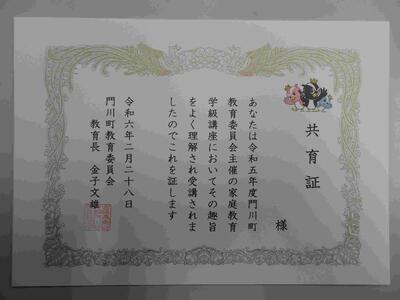 共育証
様
あなたは令和五年度門川町
教育委員会主催の家庭教育
学級講座においてその趣旨
をよく理解され受講されま
したのでこれを証します
令和六年二月二十八日
門川町教育委員会
教育長 金子文雄